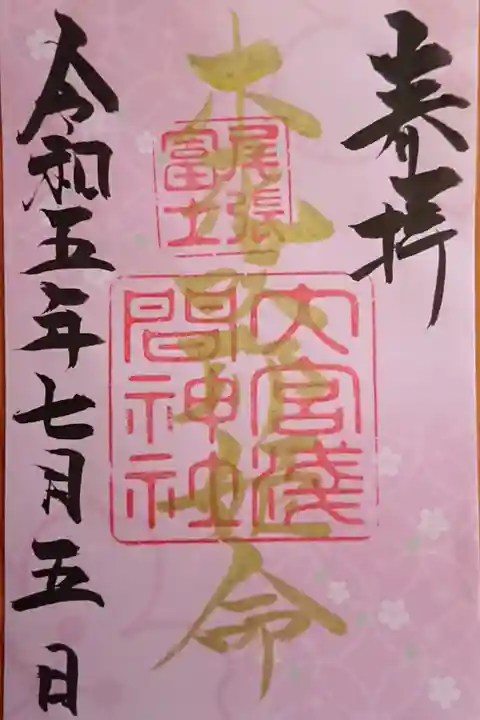 奉拝
木花咲耶姫命
尾張
富士
大宮淺
間神社
令和五年七月五日